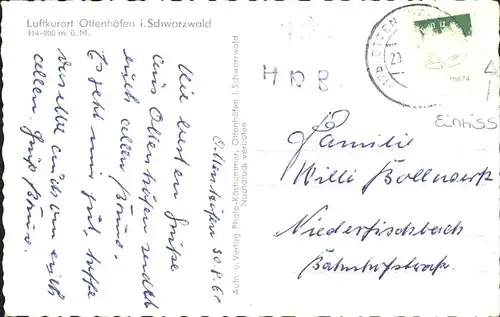 Luftkurort Ottenhöfen i. Schwarzwald
314-900 m ü. M.
Ottenhöfen 30.8.6
Die besten Grüße
aus Ottenhöfen sendet
euch allen Bruno.
Es geht mir gut, hoffe
dasselbe auch von euch
allen. Gruß Bruno.
Aufn. u. Verlag Photo-Käshammer, Ottenhöfen, i. Schwarzwald
Nachdruck verboten
HRB
OTTEN
Einriss
Familie
Willi Bollwerk
Niederfischbach
Bahnhofstraße.